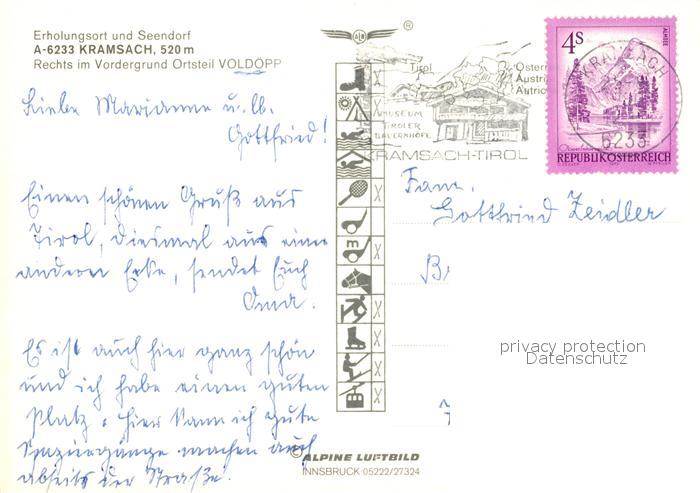 Erholungsort und Seendorf
A-6233 KRAMSACH, 520 m
Rechts im Vordergrund Ortsteil VOLDÖPP
Liebe Marianne u. lb.
Gottfried!
Einen schönen Gruß aus
Tirol, diesmal aus einer
anderen Ecke, sendet Euch
Oma.
Es ist auch hier ganz schön
und ich habe einen guten
Platz. Hier kann ich gute
Spaziergänge machen auch
abseits der Straße.
ALM
®
m
Tirol
Österr
Austri
Autric
MUSEUM
TIROLER
BAUERNHÖFE
KRAMSACH-TIROL
KRAMSACH
6233
4S
ALMSEE
REPUBLIK ÖSTERREICH
Fam.
Gottfried Zeidler
B
privacy protection
Datenschutz
© ALPINE LUFTBILD
INNSBRUCK 05222/27324